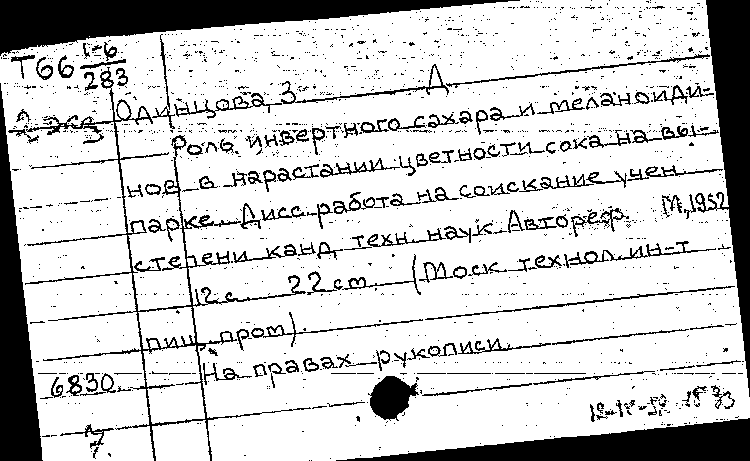 Т66 1-6/283
Д
2 экз Одинцова, З.
Роль инвертного сахара и меланоиди-
нов в нарастании цветности сока на вы-
парке. Дисс. работа на соискание учен.
степени канд. техн. наук. Автореф. М., 1952
12 с. 22 см. (Моск. технол. ин-т
пищ. пром).
6830. На правах рукописи.
7.